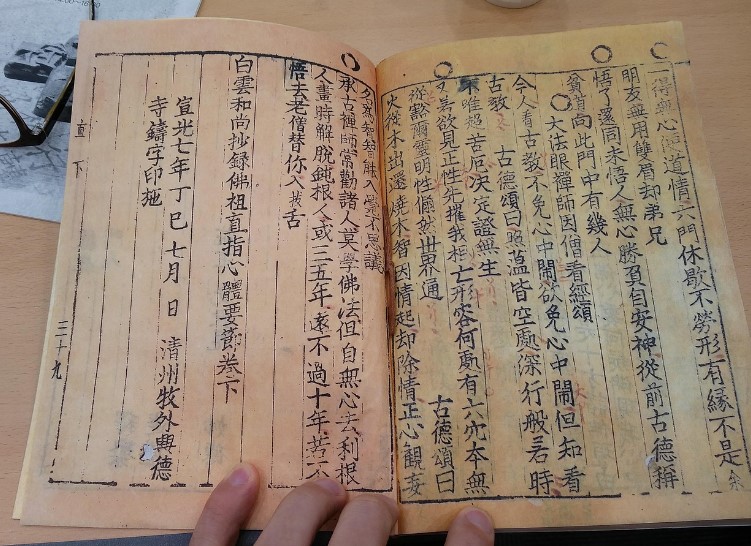 一得無心便道情六門休歇不勞形有緣不是余
朋友無用雙眉却弟兄
悟了還同未悟人無心勝負自安神從前古德稱
貧道向此門中有幾人
大法眼禪師因僧看經頌
今人看古教不免心中鬧欲免心中鬧但知看
古教 古德頌曰照蘊皆空處深行般若時
不唯超苦厄決定證無生
又若欲見正性先摧我相亡形容何處有六宂本無
從豁爾靈明性儼然世界通 古德頌曰
火從木出還燒木智因情起却除情正心觀妄
名爲智智能入覺不思議
承古禪師常勸諸人莫學佛法但自無心去利根
人晝時解脫鈍根人或三五年遠不過十年若不
悟去老僧替你入拔舌
白雲和尙抄錄佛祖直指心體要節卷下
宣光七年丁巳七月 日 淸州牧外興德
寺鑄字印施
直下
三十九